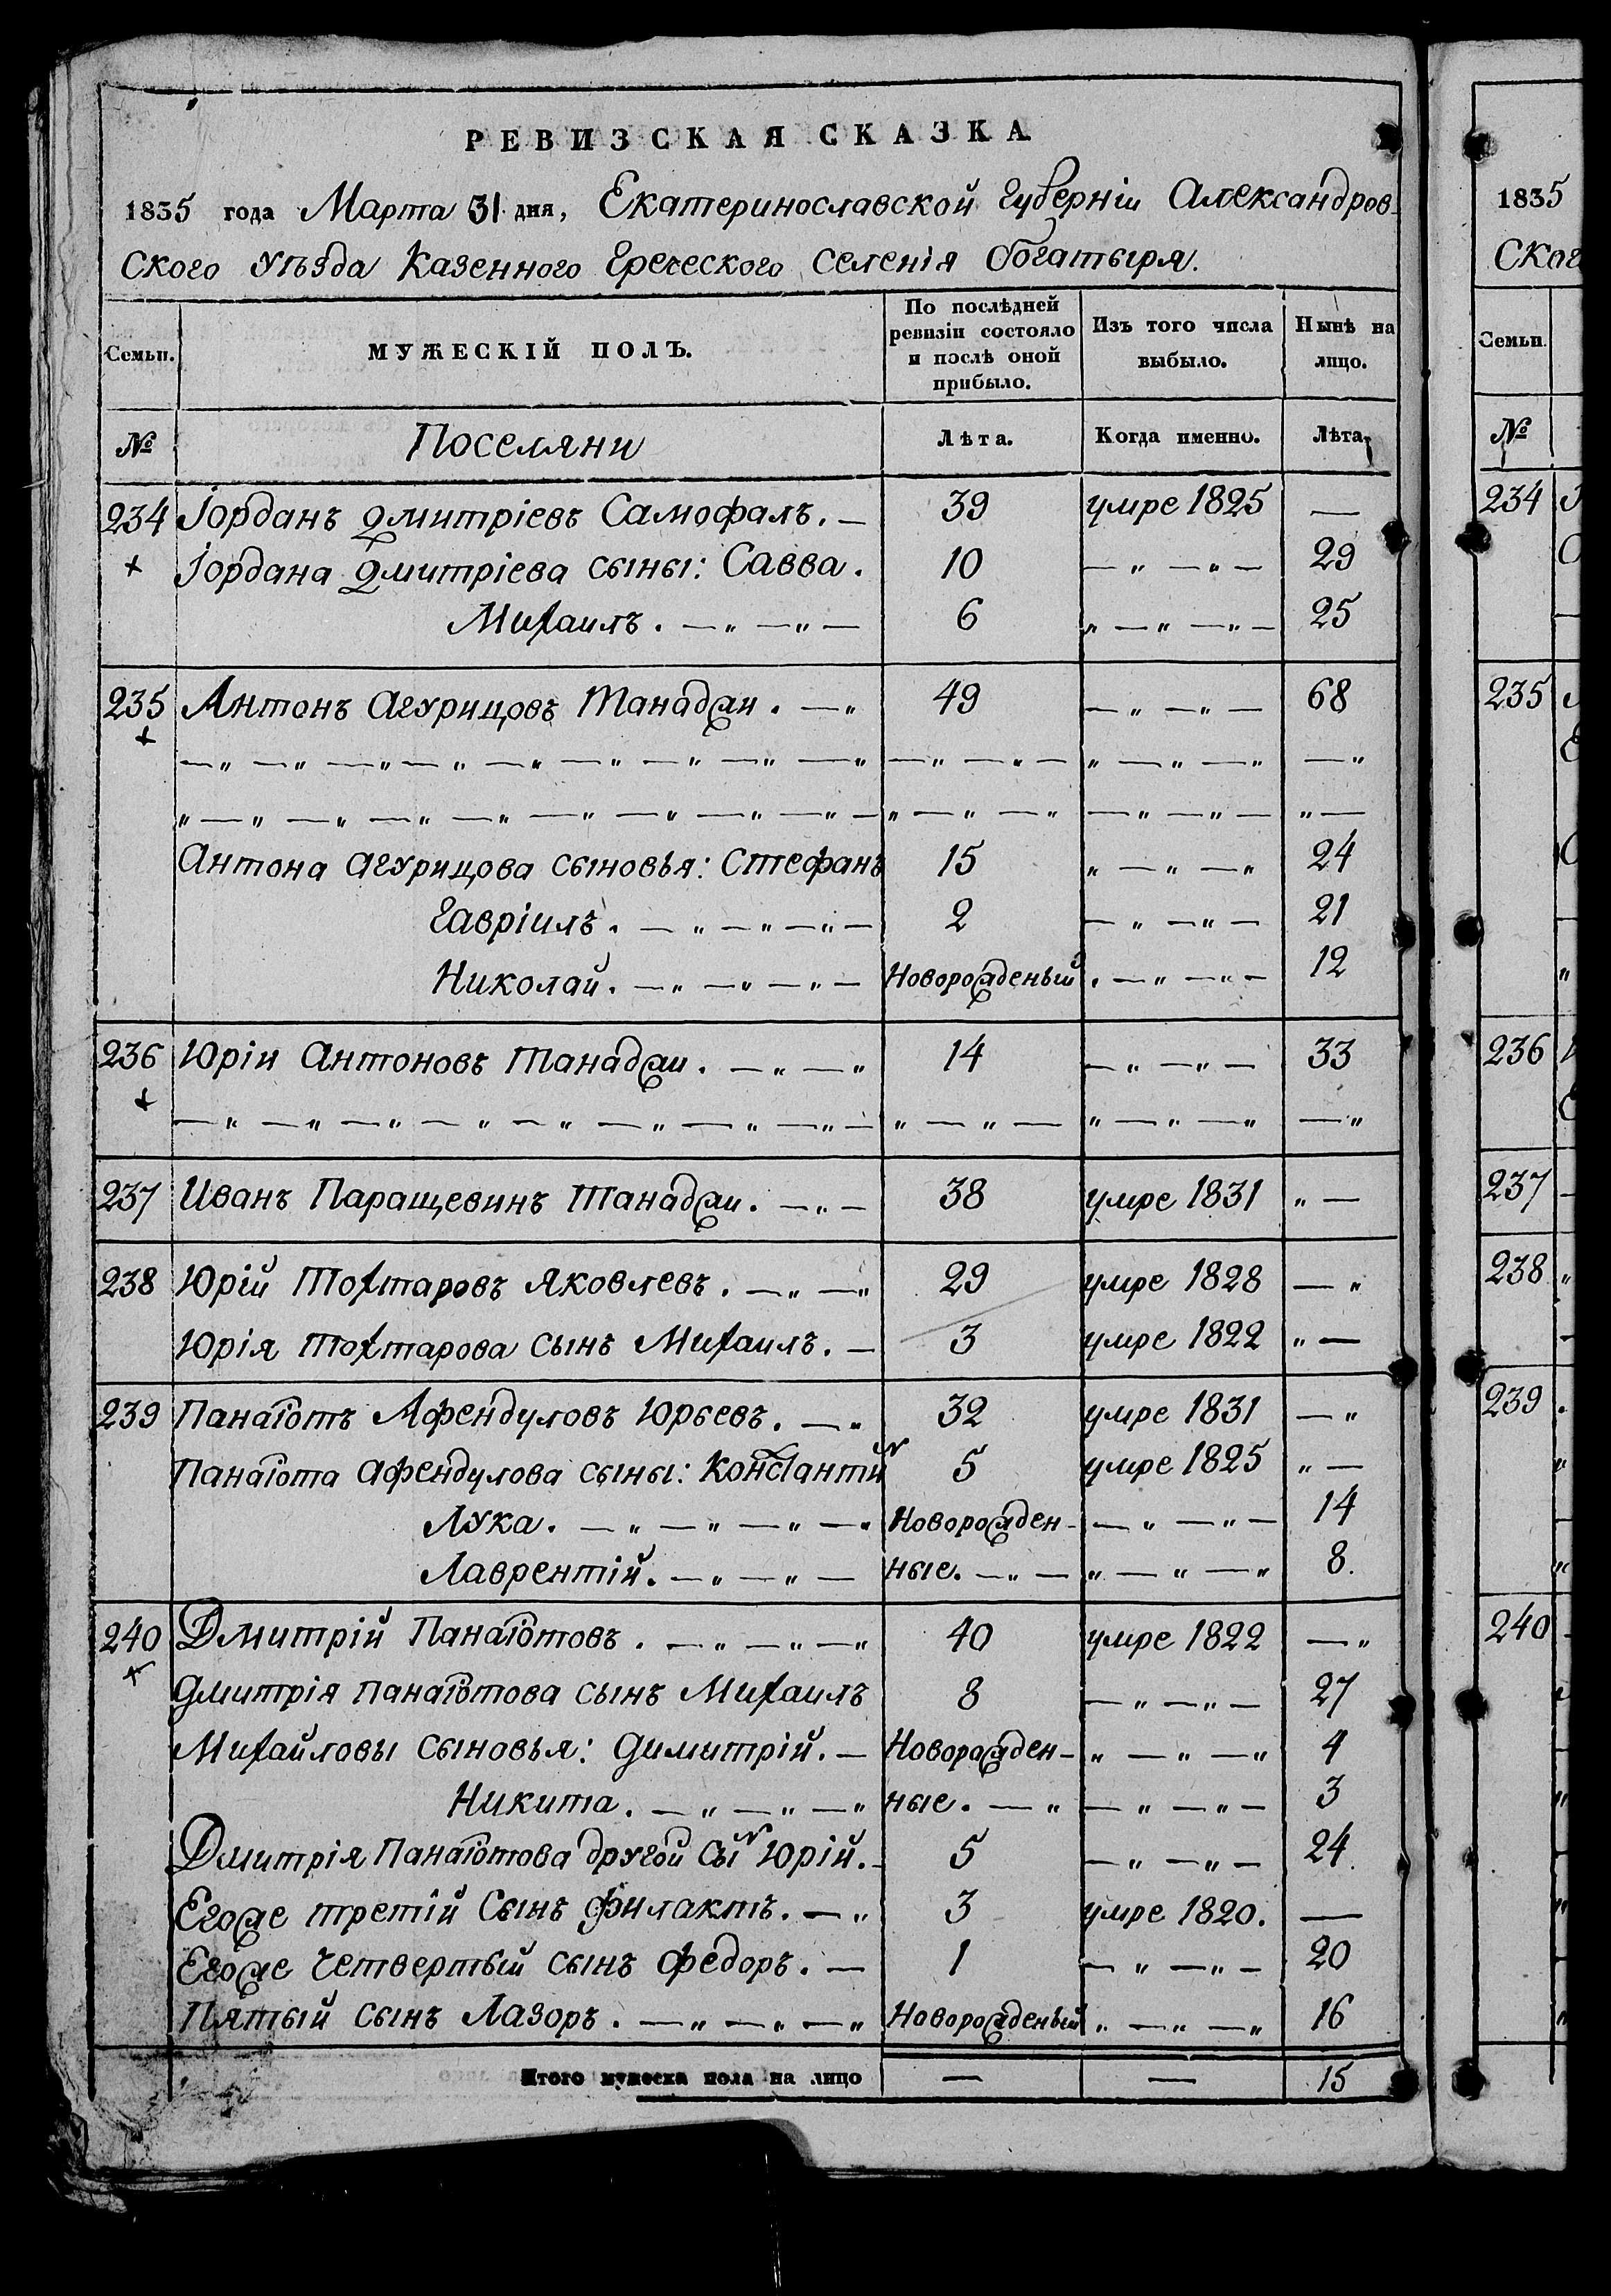 РЕВИЗСКАЯ СКАЗКА
1835 года Марта 31 дня, Екатеринославской губерніи Александров-
ского уѣзда Казенного Греческого селенія богатыря.
Семьи. МУЖЕСКІЙ ПОЛЪ. По послѣдней ревизіи состояло и послѣ оной прибыло. Изъ того числа выбыло. Нынѣ на лицо.
№ Поселяни Лѣта. Когда именно. Лѣта.
234 Іорданъ Дмитріевъ Самофалъ. — 39 умре 1825 —
+ Іордана Дмитріева сыны: Савва. 10 — „ — „ — 29
Михаилъ. — „ — „ — 6 „ — „ — „ — 25
235 Антонъ Агурицовъ Танаджи. — „ 49 — „ — „ — 68
+ — „ — „ — „ — „ — „ — „ — „ — „ — „ — „ — „ — „ — „ — „ — „
„ — „ — „ — „ — „ — „ — „ — „ — „ — „ — „ — „ — „ — „ — „ —
Антона Агурицова сыновья: Стефанъ 15 „ — „ — „ 24
Гавріилъ. — „ — „ — „ — 2 — „ — „ — 21
Николай. — „ — „ — „ — Новорожденый . — „ — „ — 12
236 Юріи Антоновъ Танаджи. — „ — „ 14 — „ — „ — 33
+ — „ — „ — „ — „ — „ — „ — „ — „ — „ — „ — „ — „ — „ — „
237 Иванъ Паращевинъ Танаджи. — „ — 38 умре 1831 „ —
238 Юрій Тохтаровъ Яковлевъ. — „ — „ 29 умре 1828 — „
Юрія Тохтарова сынъ Михаилъ. — 3 умре 1822 „ —
239 Панаіотъ Афендуловъ Юрьевъ. — „ 32 умре 1831 — „
Панаіота Афендулова сыны: Константин 5 умре 1825 „ —
Лука. — „ — „ — „ — „ Новорожден- — „ — „ — 14
Лаврентій. — „ — „ — ные. — „ — „ — „ — „ 8.
240 Дмитрій Панаіотовъ. — „ — „ — „ 40 умре 1822 — „
+ Дмитрія Панаіотова сынъ Михаилъ 8 — „ — „ — 27
Михайловы сыновья: Димитрій. — Новорожден- „ — „ — „ 4
Никита. — „ — „ — „ ные. — „ — „ — „ — 3
Дмитрія Панаіотова другой сын Юрій. — 5 — „ — „ — 24.
Егоже третій сынъ Филактъ. — „ 3 умре 1820. —
Егоже четвертый сынъ Федоръ. — 1 — „ — „ — 20
Пятый сынъ Лазоръ. — „ — „ — „ Новорожденый „ — „ — „ 16
Итого мужеска пола на лицо — — 15
1835
Семьи.
№
234
235
236
237
238
239
240